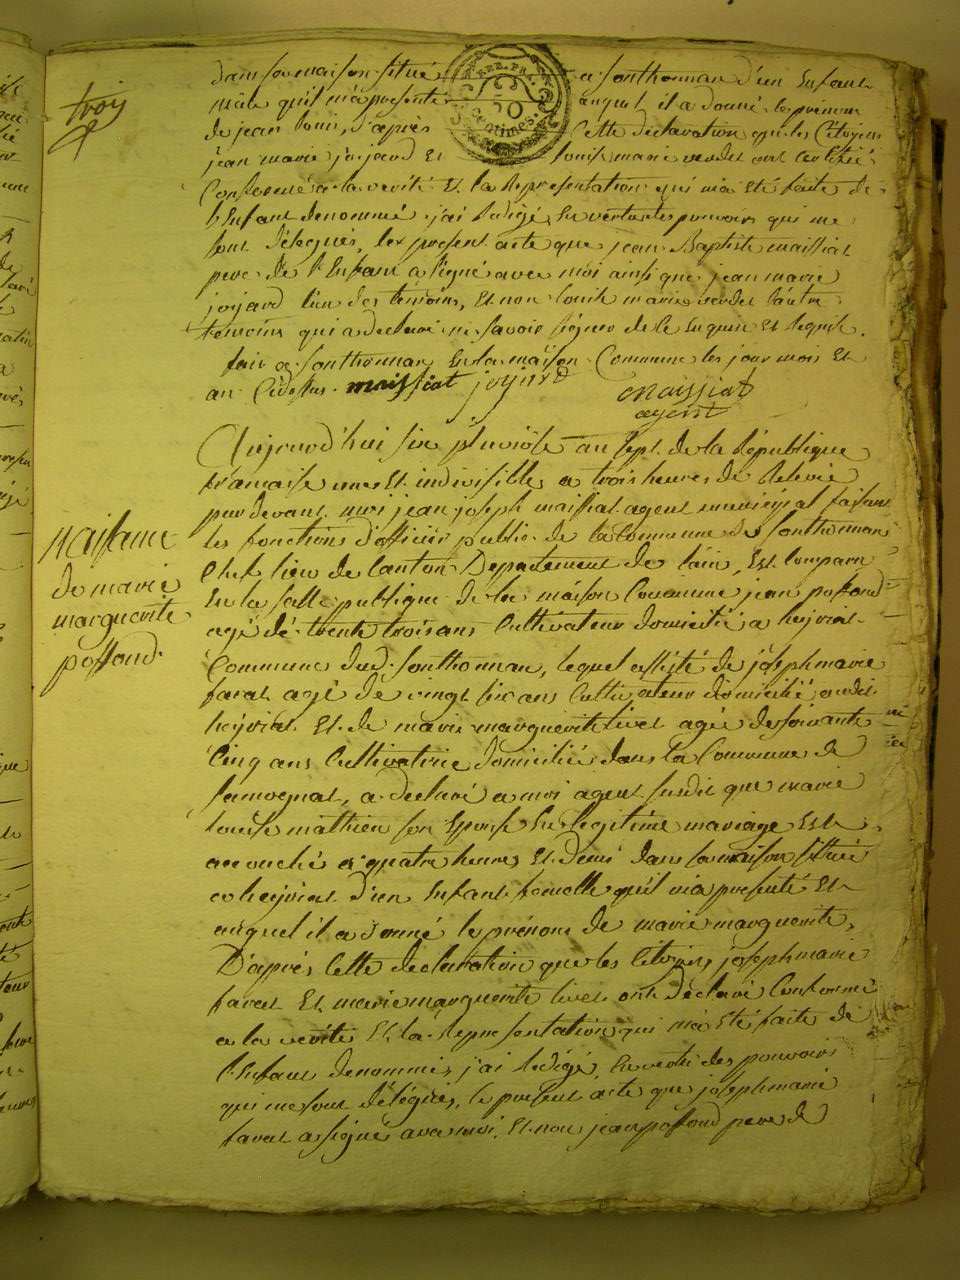 trois
dans sa maison situé a Sonthonnax d'un Enfant
male qu'il m'a presenté auquel il a donné le prénom
de jean louis, d'après Cette declaration que les Citoyens
jean marie joyard Et louise marie verdet ont certifié
Conforme a la verité Et la Representation qui m'a Eté faite de
l'Enfant denommé j'ai Redigé, En vertu des pouvoirs qui me
sont délegués, le present acte que jean Baptiste maissiat
pere de l'Enfant a signé avec moi ainsi que jean marie
joyard l'un des temoins, Et non louise marie verdet l'autre
temoins qui a declaré ne savoir signer de ce Enquis Et Requis.
fait a Sonthonnax En la maison Commune les jour mois Et
an Cidessus. maissiat joyard maissiat
agent
REP. FRA.
50
centimes
Aujourd'hui six pluviôse an sept de la République
francaise une Et indivisible a trois heures de Relevée
par devant moi jean joseph maissiat agent municipal faisant
les fonctions d'officier public de la Commune de Sonthonnax
Chef lieu de Canton Departement de l'ain, Est Comparu
En la salle publique de la maison Commune jean possoud
agé de trente trois ans Cultivateur domicilié a heyriat
Commune dud. Sonthonnax, lequel assisté de joseph marie
favat agé de vingt six ans Cultivateur domicilié audit
heyriat Et de marie marguerite livet agée de soixante
Cinq ans Cultivatrice domiciliée dans la Commune de
Samognat, a declaré a moi agent susdit que marie
louise mathieu son Epouse En legitime mariage Est
accouché a quatre heures Et demi dans sa maison située
a heyriat d'un Enfant femelle qu'il m'a presenté Et
auquel il a donné le prénom de marie marguerite,
D'après Cette declaration que les Citoyens joseph marie
favat Et marie marguerite livet ont déclaré Conforme
a la verité Et la Representation qui m'a Eté faite de
l'Enfant denommé, j'ai Redigé, En vertu des pouvoirs
qui me sont délégués, le present acte que joseph marie
favat a signé avec moi, Et non jean possoud pere de
Naissance
de marie
marguerite
possoud.